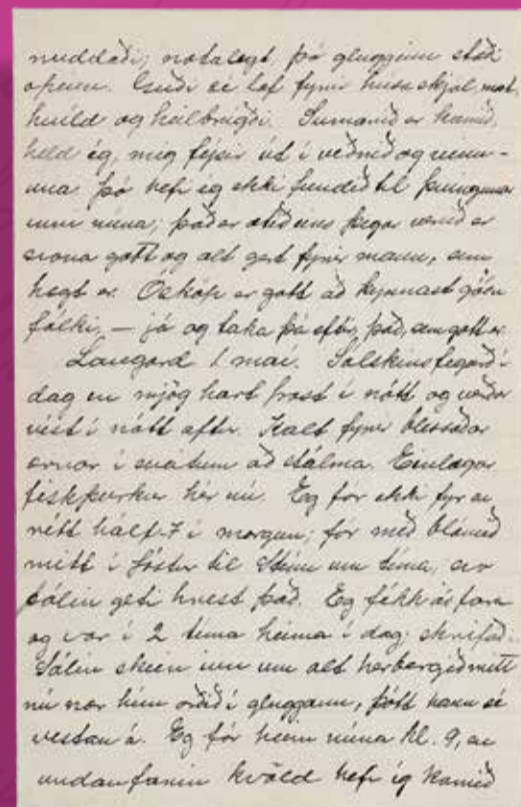 nuddaði; notalegt, þó glugginn stæði
opinn. Guði sé lof fyrir húsaskjól, mat,
hvíld og heilbrigði. Sumarið er komið,
held ég, mig fýsir út í veðrið og vinn-
una. Þó hefi eg ekki fundið til þunga
inni núna; það er þegar verið er
svona gott og alt gert fyrir mann, sem
hægt er. Ósköp er gott að kynnast góðu
fólki, – já og taka þá eftir það, sem gott er.
Laugard 1 maí. Sólskinsfegurð í
dag en mjög hart frost í nótt og verður
víst í nótt aftr. Kalt fyrir blessaðar
ærnar í sveitum að Einlægur
fiskþurkur hér nú. Eg fór ekki fyr en
rétt hálf 7 í morgun; fór með blómið
mitt í fóstur til Steinu um tíma, svo
sólin geti hrest það. Eg fékk að fara
og var í 2 tíma heima í dag; skrifaði.
Sólin skein inn um alt herbergið mitt
nú nær hún orðið í gluggann, þótt hann sé
vestan á. Eg fór heim núna kl. 9, en
undanfarin kvöld hefi ég komið